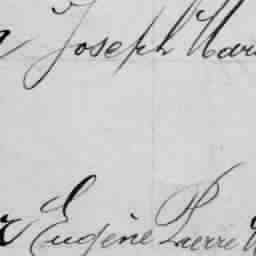 Joseph Mari
Eugène Pierre